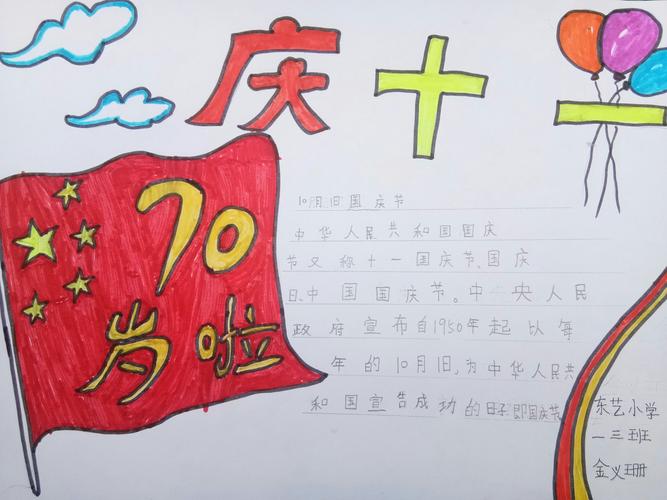 庆十一
70
岁啦
10月1日国庆节
中华人民共和国国庆
节又称十一国庆节、国庆
日、中国国庆节。中央人民
政府宣布自1950年起以每
年的10月1日,为中华人民共
和国宣告成功的日子即国庆节
东艺小学
一三班
金义珊